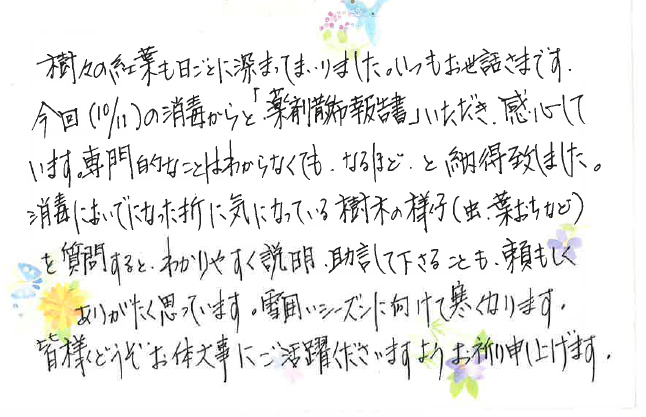 樹々の紅葉も日ごとに深まってまいりました。いつもお世話さまです.
今回(10/11)の消毒からと「薬剤散布報告書」いただき、感心して
います。専門的なことはわからなくても、なるほど、と納得致しました。
消毒においでになった折に気になっている樹木の様子(虫、葉おちなど)
を質問すると、わかりやすく説明、助言して下さることも、頼もしく
ありがたく思っています。雪囲いシーズンに向けて寒くなります.
皆様どうぞお体大事にご活躍くださいますようお祈り申し上げます.